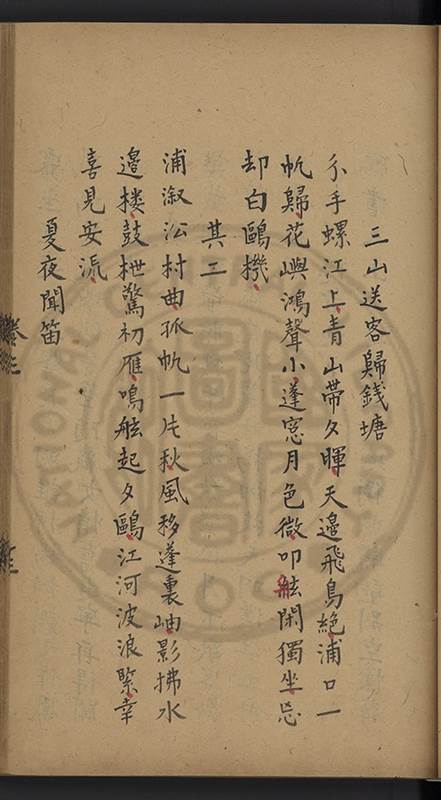 三山送客歸錢塘
分手螺江上青山帶夕暉天邉飛鳥絶浦口一
帆歸花嶼鴻聲小蓬窓月色微叩舷閑獨坐忘
却白鷗機
其二
浦溆㳂村曲孤帆一片秋風移蓬裏岫影拂水
邉摟鼓枻驚初雁鳴舷起夕鷗江河波浪緊幸
喜見安流
夏夜聞笛